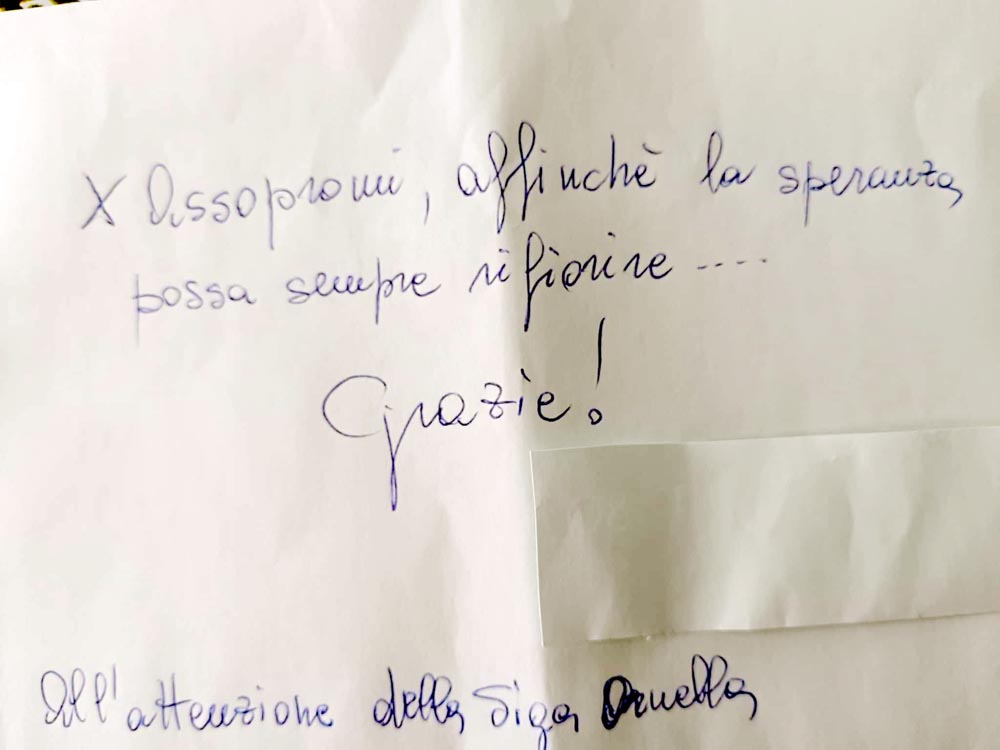 X Assopromi, affinchè la speranza
possa sempre rifiorire ....
Grazie!
All'attenzione della Sig.a Ornella